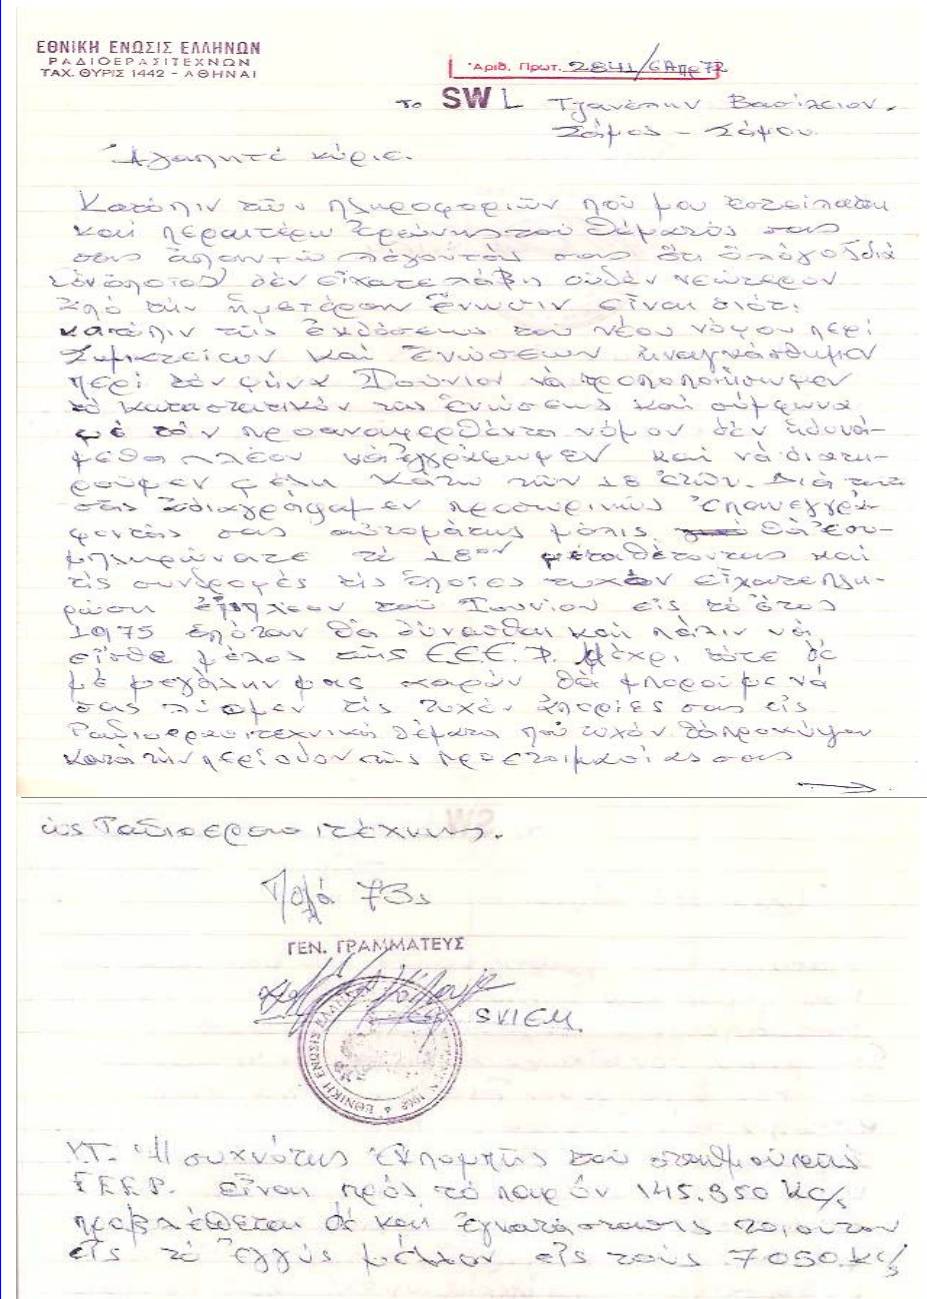 ΕΘΝΙΚΗ ΕΝΩΣΙΣ ΕΛΛΗΝΩΝ
ΡΑΔΙΟΕΡΑΣΙΤΕΧΝΩΝ
ΤΑΧ. ΘΥΡΙΣ 1442 - ΑΘΗΝΑΙ
Ἀριθ. Πρωτ. 2841/6 Απρ 72
το SWL Τζανέλλην Βασίλειον.
Σάμος - Σάμου
Ἀγαπητέ κύριε.
Κατόπιν τῶν πληροφοριῶν πού μου
καί περαιτέρω ἐρεύνης τοῦ θέματός σας
σᾶς ἀπαντῶ σας ὅτι ὁ λόγος διά
τόν ὁποῖον δέν εἴχατε λάβη οὐδέν νεώτερον
ἀπό τήν ἡμετέραν ἕνωσιν εἶναι διότι
κατόπιν τῆς ἐκδόσεως τοῦ νέου νόμου περί
Σωματείων καί Ἑνώσεων ἠναγκάσθημεν
περί τόν μῆνα Ἰούνιον νά τροποποιήσωμεν
τό καταστατικόν τῆς ἑνώσεως καί σύμφωνα
μέ τόν προαναφερθέντα νόμον δέν ἠδυνά-
μεθα πλέον νά ἐγγράφωμεν καί νά διατη-
ροῦμεν μέλη κάτω τῶν 18 ἐτῶν. Διά τοῦτο
σᾶς ἐδιαγράψαμεν προσωρινῶς ἐπανεγγρά-
φοντάς σας αὐτομάτως μόλις θά ἐσυ-
μπληρώνατε τό 18ον μεταθέτοντας καί
τίς συνδρομές τίς ὁποῖες τυχόν εἴχατε πλη-
ρώση πλέον τοῦ Ἰουνίου εἰς τό ἔτος
1975 ὁπόταν θά δύνασθαι καί πάλιν νά
εἶσθε μέλος τῆς Ε.Ε.Ε.Ρ. Μέχρι τότε δέ
μέ μεγάλην μας χαράν θά μποροῦμε νά
σας λύσομεν τίς τυχόν ἀπορίες σας εἰς
Ραδιοερασιτεχνικά θέματα πού τυχόν θά προκύψουν
κατά τήν περίοδον τῆς προετοιμασίας σας
ὡς Ραδιοερασιτέχνης.
Πολλά 73s
ΓΕΝ. ΓΡΑΜΜΑΤΕΥΣ
SV1EM.
ΕΘΝΙΚΗ ΕΝΩΣΙΣ ΕΛΛΗΝΩΝ
ΥΓ. Ἡ συχνότης ἐκπομπῆς τοῦ σταθμοῦ τῆς
Ε.Ε.Ε.Ρ. εἶναι πρός τό παρόν 145.950 kc/s
προβλέπεται δέ καί ἐγκατάστασις τοιούτου
εἰς τό ἐγγύς μέλλον εἰς τούς 7050 kc/s